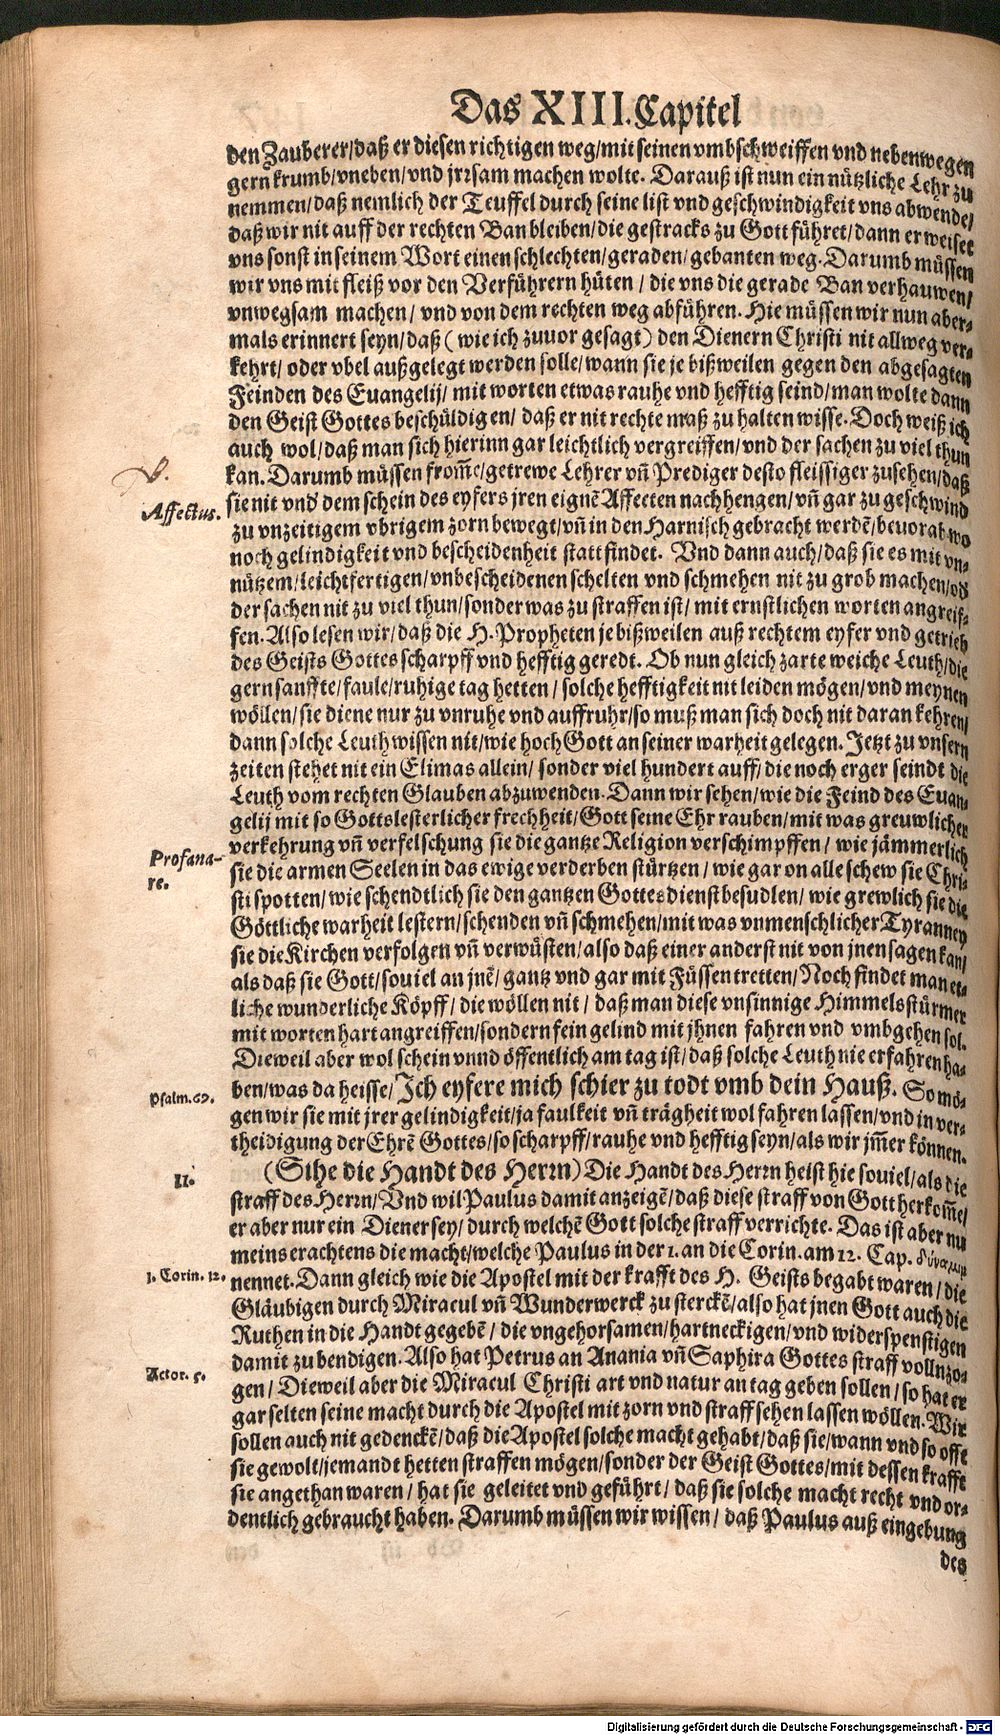 Das XIII. Capitel
den Zauberer/daß er diesen richtigen weg/mit seinen vmbschweiffen vnd nebenwegen
gern krumb/vneben/vnd jrꝛsam machen wolte. Darauß ist nun ein nützliche Lehr zu
nemmen/daß nemlich der Teuffel durch seine list vnd geschwindigkeit vns abwende/
daß wir nit auff der rechten Ban bleiben/die gestracks zu Gott führet/dann er weiset
vns sonst in seinem Wort einen schlechten/geraden/gebanten weg. Darumb müssen
wir vns mit fleiß vor den Verführern hüten/ die vns die gerade Ban verhauwen/
vnwegsam machen/ vnd von dem rechten weg abführen. Hie müssen wir nun aber-
mals erinnert seyn/daß ( wie ich zuuor gesagt) den Dienern Christi nit allweg ver-
kehrt/ oder vbel außgelegt werden solle/wann sie je bißweilen gegen den abgesagten
Feinden des Euangelij/ mit worten etwas rauhe vnd hefftig seind/man wolte dann
den Geist Gottes beschüldigen/ daß er nit rechte maß zu halten wisse. Doch weiß ich
auch wol/daß man sich hierinn gar leichtlich vergreiffen/vnd der sachen zu viel thun
kan. Darumb müssen from̃e/getrewe Lehrer vñ Prediger desto fleissiger zusehen/daß
Affectus.
sie nit vnd' dem schein des eyfers jren eignẽ Affecten nachhengen/vñ gar zu geschwind
zu vnzeitigem vbrigem zorn bewegt/vñ in den Harnisch gebracht werdẽ/beuorab wo
noch gelindigkeit vnd bescheidenheit statt findet. Vnd dann auch/daß sie es mit vn-
nützem/leichtfertigen/vnbescheidenen schelten vnd schmehen nit zu grob machen/od'
der sachen nit zu viel thun/sonder was zu straffen ist/ mit ernstlichen worten angreif-
fen. Also lesen wir/daß die H. Propheten je bißweilen auß rechtem eyfer vnd getrieb
des Geists Gottes scharpff vnd hefftig geredt. Ob nun gleich zarte weiche Leuth/die
gern sanffte/faule/ruhige tag hetten/ solche hefftigkeit nit leiden mögen/vnd meynen
wöllen/sie diene nur zu vnruhe vnd auffruhr/so muß man sich doch nit daran kehren/
dann solche Leuth wissen nit/wie hoch Gott an seiner warheit gelegen. Jetzt zu vnsern
zeiten stehet nit ein Elimas allein/ sonder viel hundert auff/die noch erger seindt die
Leuth vom rechten Glauben abzuwenden. Dann wir sehen/wie die Feind des Euan-
gelij mit so Gottslesterlicher frechheit/Gott seine Ehr rauben/mit was greuwlicher
verkehrung vñ verfelschung sie die gantze Religion verschimpffen/ wie jämmerlich
Profana-
re.
sie die armen Seelen in das ewige verderben stürtzen/ wie gar on alle schew sie Chri-
sti spotten/wie schendtlich sie den gantzen Gottesdienst besudlen/ wie grewlich sie die
Göttliche warheit lestern/schenden vñ schmehen/mit was vnmenschlicher Tyranney
sie die Kirchen verfolgen vñ verwüsten/also daß einer anderst nit von jnen sagen kan/
als daß sie Gott/souiel an jnẽ/ gantz vnd gar mit Füssen tretten/Noch findet man et-
liche wunderliche Köpff/ die wöllen nit/ daß man diese vnsinnige Himmelsstürmer
mit worten hart angreiffen/sondern fein gelind mit jhnen fahren vnd vmbgehen sol.
Dieweil aber wol schein vnnd öffentlich am tag ist/daß solche Leuth nie erfahren ha-
Psalm. 69.
ben/was da heisse/Ich eyfere mich schier zu todt vmb dein Hauß. So mö-
gen wir sie mit jrer gelindigkeit/ja faulkeit vñ trägheit wol fahren lassen/vnd in ver-
theidigung der Ehrẽ Gottes/so scharpff/rauhe vnd hefftig seyn/als wir jm̃er können.
II.
(Sihe die Handt des Herrn) Die Handt des Herrn heist hie souiel/als die
straff des Herrn/Vnd wil Paulus damit anzeigẽ/daß diese straff von Gott herkom̃e/
er aber nur ein Diener sey/durch welchẽ Gott solche straff verrichte. Das ist aber nu
meins erachtens die macht/welche Paulus in der 1. an die Corin. am 12. Cap. δύναμιμ
1. Corin. 12.
nennet. Dann gleich wie die Apostel mit der krafft des H. Geists begabt waren/ die
Gläubigen durch Miracul vñ Wunderwerck zu sterckẽ/also hat jnen Gott auch die
Ruthen in die Handt gegebẽ/ die vngehorsamen/hartneckigen/vnd widerspenstigen
damit zu bendigen. Also hat Petrus an Anania vñ Saphira Gottes straff vollnzo-
Actor. 5.
gen/ Dieweil aber die Miracul Christi art vnd natur an tag geben sollen/ so hat er
gar selten seine macht durch die Apostel mit zorn vnd straff sehen lassen wöllen. Wir
sollen auch nit gedenckẽ/daß die Apostel solche macht gehabt/daß sie/wann vnd so offt
sie gewolt/jemandt hetten straffen mögen/sonder der Geist Gottes/mit dessen krafft
sie angethan waren/ hat sie geleitet vnd geführt/ daß sie solche macht recht vnd or-
dentlich gebraucht haben. Darumb müssen wir wissen/ daß Paulus auß eingebung
des
Digitalisierung gefördert durch die Deutsche Forschungsgemeinschaft - DFG